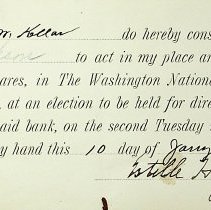 M. Kellar do hereby cons
to act in my place an
ares, in The Washington Nationa
, at an election to be held for dire
aid bank, on the second Tuesday
y hand this 10 day of Janry
Estelle H